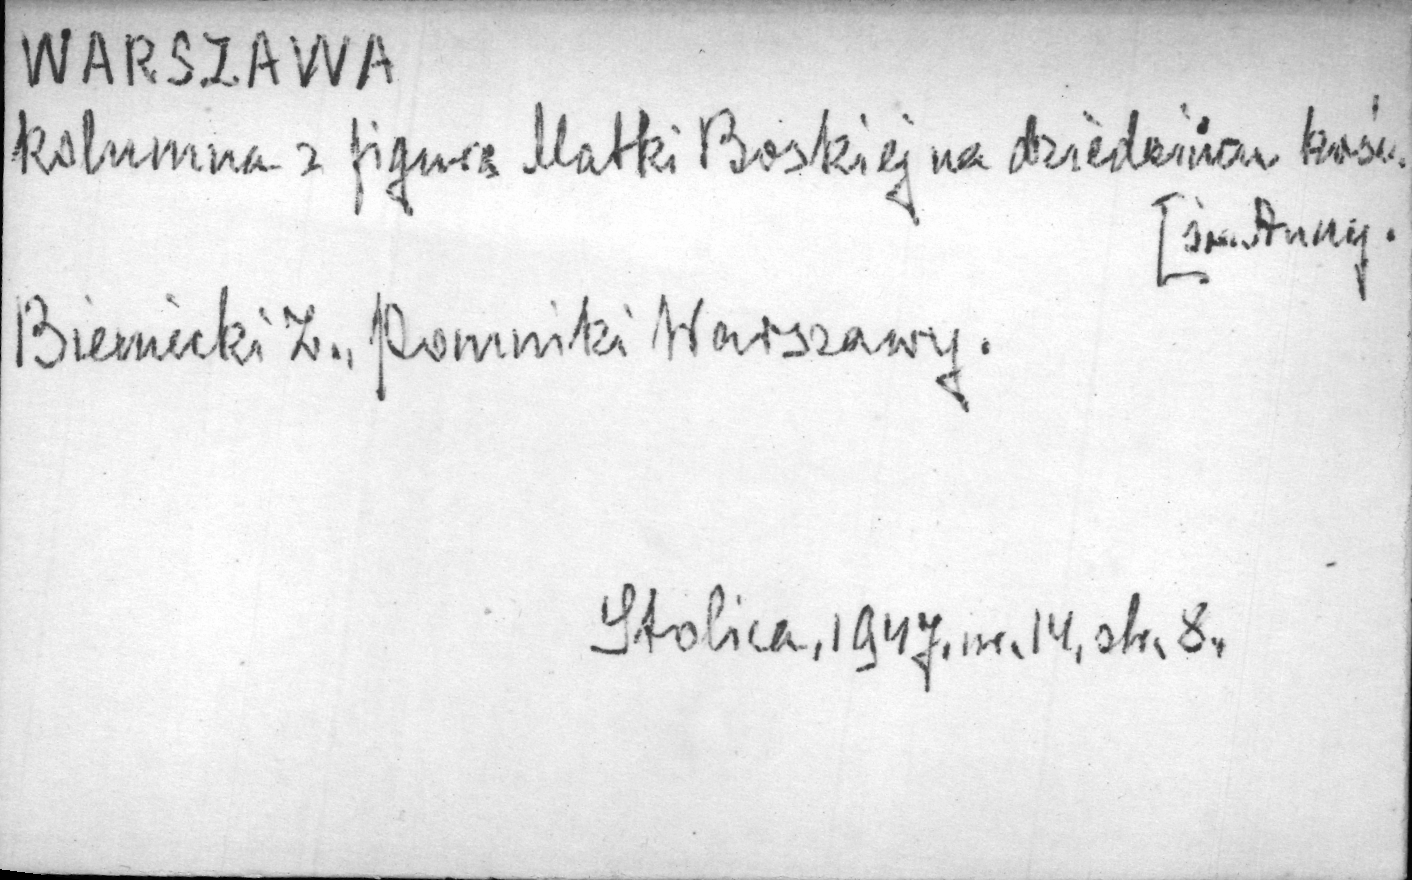 WARSZAWA
kolumna z figurą Matki Boskiej na dziedzińcu kość.
[św. Anny.
Biernacki Z., Pomniki Warszawy.
Stolica, 1947, nr. 14, str. 8.